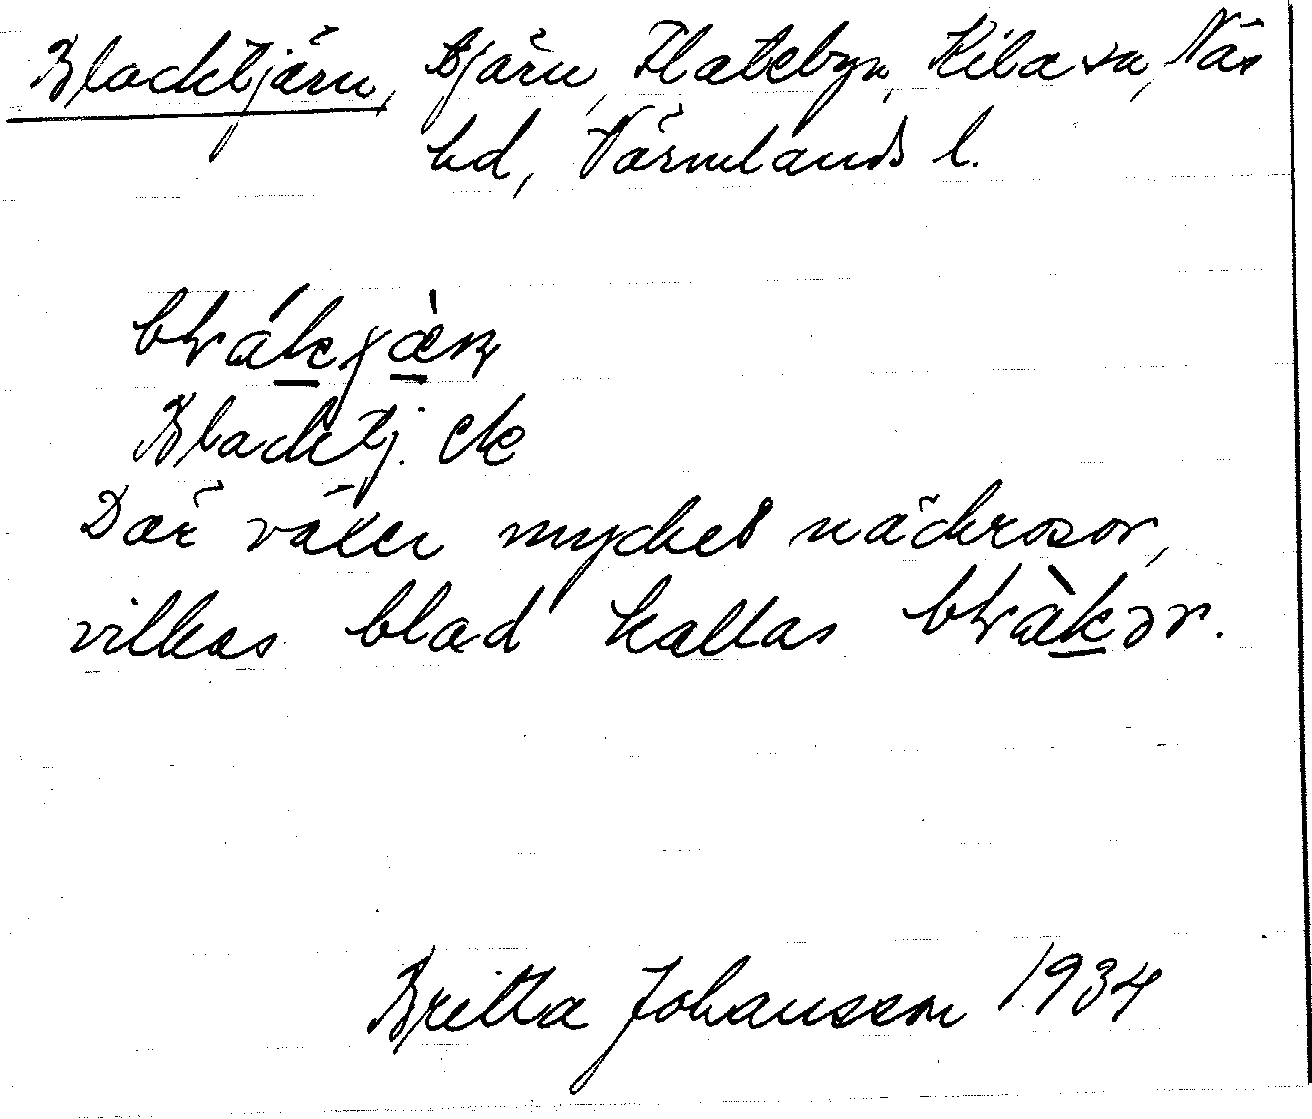 Blacktjärn, tjärn, Flatebyn, Kila sn, Näs
hd, Värmlands l.
Blacktj. ek
Där växer mycket näckrosor,
vilkas blad kallas
Britta Johansson 1934